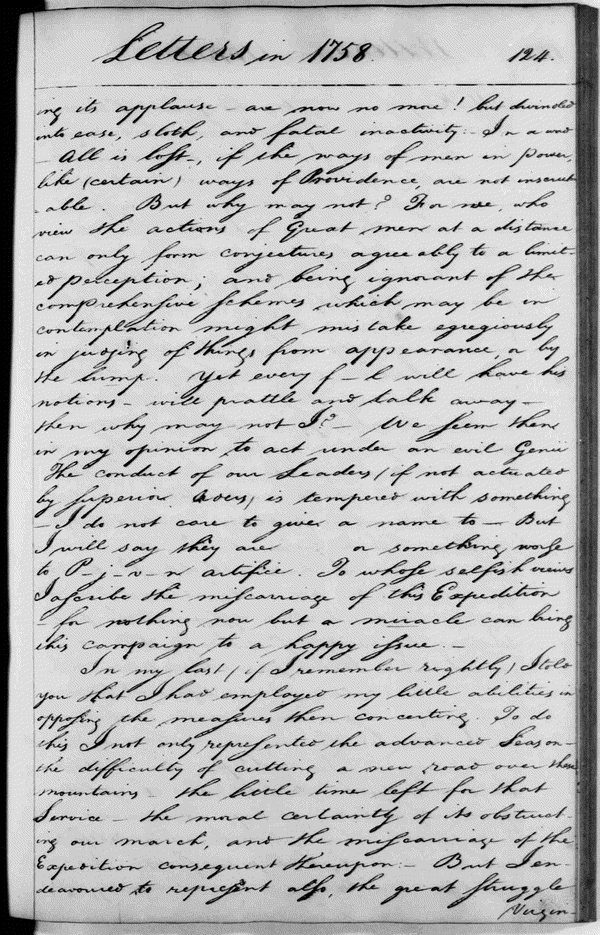 Letters in 1758. 124.
ing its applause - are now no more! but dwindled
into ease, sloth, and fatal inactivity. - In a word
- All is lost, if the ways of men in power,
like (certain) ways of Providence, are not inscrut
-able. But why may not? For we, who
view the actions of Great men at a distance
can only form conjectures agreeably to a limit-
ed perception; and being ignorant of the
comprehensive schemes which may be in
contemplation might mistake egregiously
in judging of things from appearance, or by
the lump. Yet every f - l will have his
notions - will prattle and talk away -
then why may not I? - We seem then
in my opinion to act under an evil Genii
The conduct of our Leaders (if not actuated
by superior Orders) is tempered with something
- I do not care to give a name to - But
I will say they are or something worse
to P - j - v - n artifice. To whose selfish views
I ascribe the miscarriage of this Expedition
- for nothing now but a miracle can bring
this campaign to a happy issue. -
In my last (if I remember rightly) I told
you that I had employed my little abilities in
opposing the measures then concerting. To do
this I not only represented the advanced Season -
the difficulty of cutting a new road over these
mountains - the little time left for that
Service - the moral certainty of its obstruct-
ing our march, and the miscarriage of the
Expedition consequent thereupon: - But I en-
deavoured to represent also, the great struggle
Virgin-